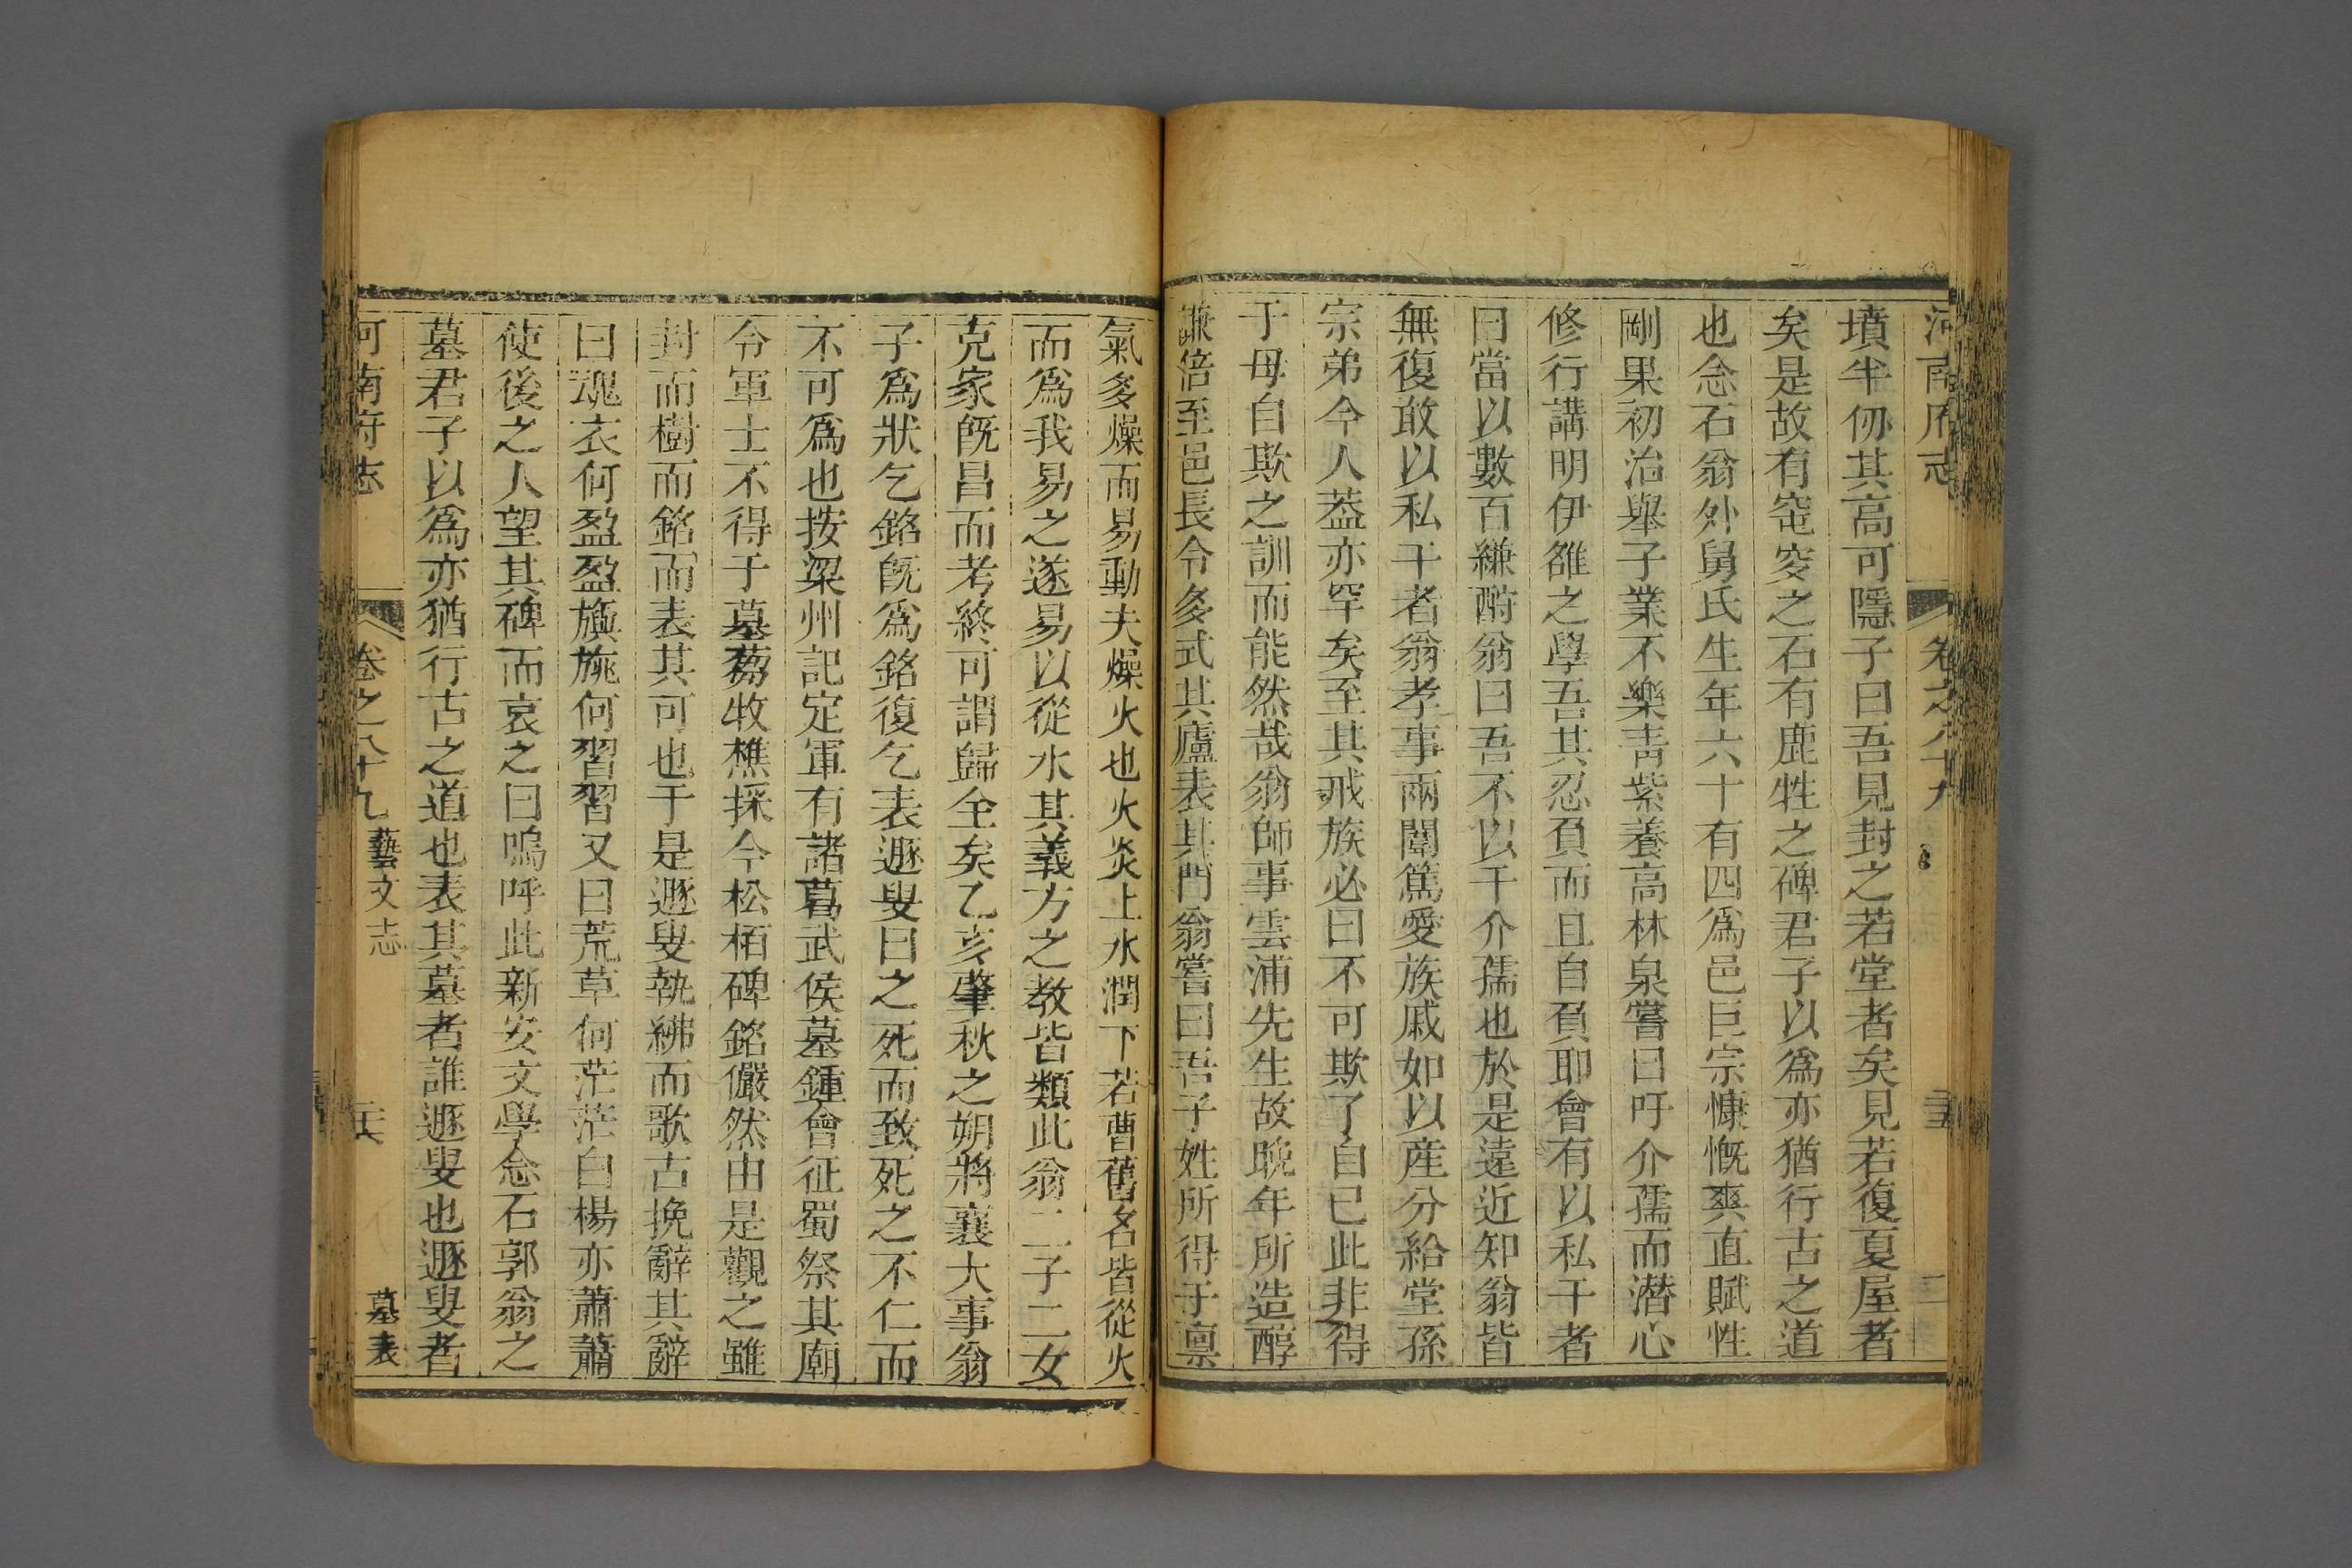 河南府志 卷之八十九 三五
墳半仞其高可隱子曰吾見封之若堂者矣見若復夏屋者
矣是故有窀穸之石有鹿牲之碑君子以爲亦猶行古之道
也念石翁外舅氏生年六十有四爲邑巨宗慷慨爽直賦性
剛果初治舉子業不樂靑紫養高林泉嘗曰吁介孺而潛心
修行講明伊雒之學吾其忍負而且自負耶會有以私干者
曰當以數百縑酧翁曰吾不以干介孺也於是遠近知翁皆
無復敢以私干者翁孝事兩闈篤愛族戚如以産分給堂孫
宗弟今人葢亦罕矣至其戒族必曰不可欺了自已此非得
于母自欺之訓而能然哉翁師事雲浦先生故晚年所造醇
謙倍至邑長令多式其廬表其門翁嘗曰吾子姓所得于禀
氣多燥而易動夫燥火也火炎上水潤下若曹舊名皆從火
而爲我易之遂易以從水其義方之教皆類此翁二子二女
克家旣昌而考終可謂歸全矣乙亥肇秋之朔將襄大事翁
子爲狀乞銘旣爲銘復乞表遯叟曰之死而致死之不仁而
不可爲也按梁州記定軍有諸葛武侯墓鍾會征蜀祭其廟
令軍士不得于墓芻牧樵採今松栢碑銘儼然由是觀之雖
封而樹而銘而表其可也于是遯叟執紼而歌古挽辭其辭
曰魂衣何盈盈旟旐何習習又曰荒草何茫茫白楊亦蕭蕭
使後之人望其碑而哀之曰嗚呼此新安文學念石郭翁之
墓君子以爲亦猶行古之道也表其墓者誰遯叟也遯叟者
河南府志 卷之八十九 藝文志 三六 墓表